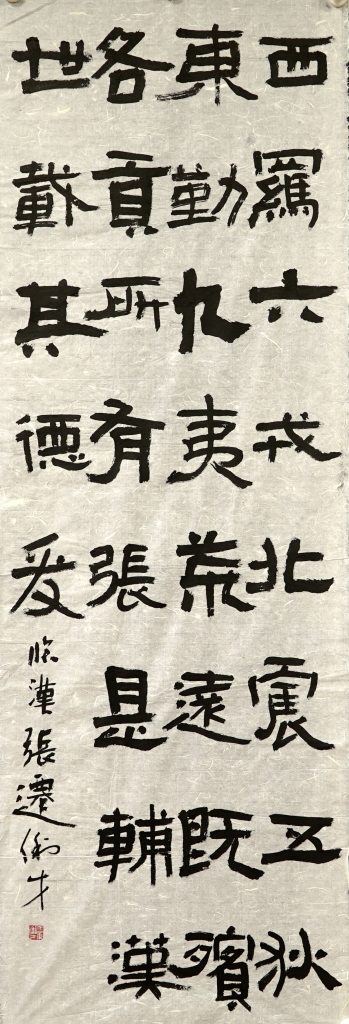 西羈六戎北震五狄
東勤九夷荒遠既殯
各貢所有張是輔漢
世載其德爰
臨漢張遷